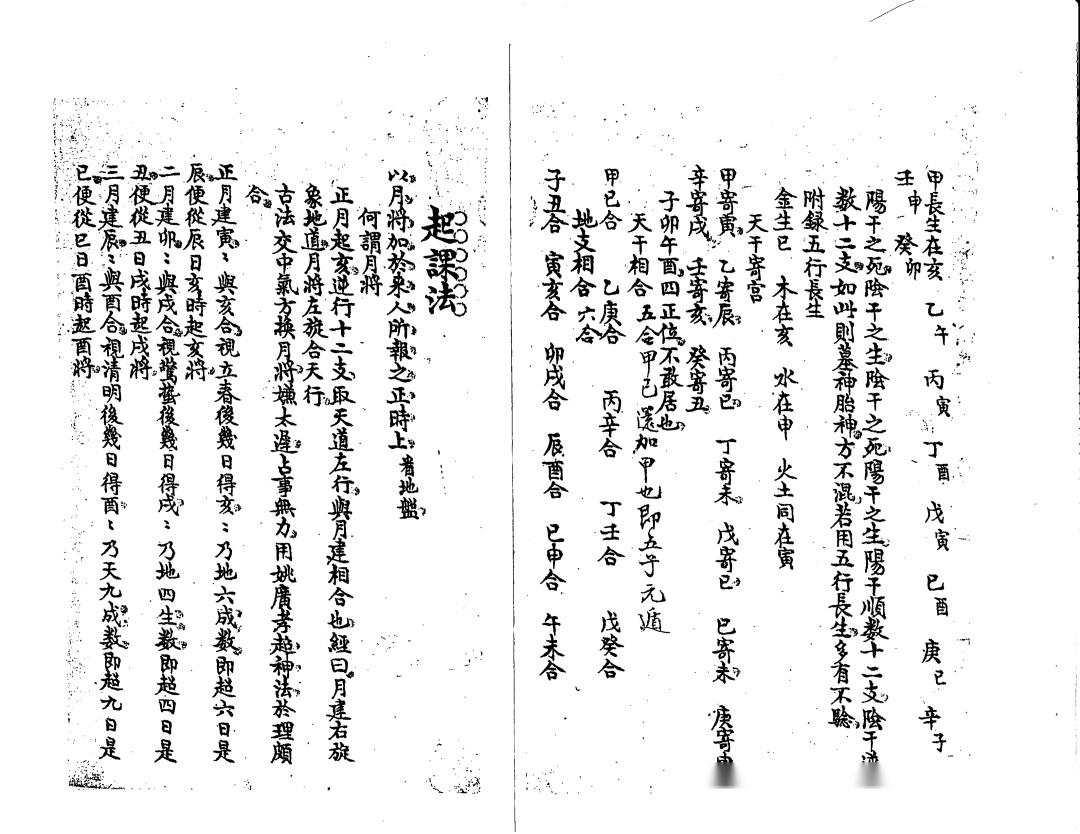 甲長生在亥 乙午 丙寅 丁酉 戊寅 巳酉 庚巳 辛子
壬申 癸卯
陽干之死陰干之生陰干之死陽干之生陽干順数十二支陰干逆
数十二支如此則墓神胎神方不混若用五行長生多有不驗
附録五行長生
金生巳 木在亥 水在申 火土同在寅
天干寄宮
甲寄寅 乙寄辰 丙寄巳 丁寄未 戊寄巳 巳寄未 庚寄申
辛寄戌 壬寄亥 癸寄丑
子卯午酉四正位不敢居也
天干相合 五合甲己還加甲也即五子元遁
甲巳合 乙庚合 丙辛合 丁壬合 戊癸合
地支相合 六合
子丑合 寅亥合 卯戌合 辰酉合 巳申合 午未合
起課法
以月將加於來人所報之正時上 看地盤
何謂月將
正月起亥逆行十二支取天道左行與月建相合也經曰月建右旋
象地道月將左旋合天行
古法交中氣方換月將嫌太遲占事無力用姚廣孝超神法於理頗
合
正月建寅〻與亥合視立春後幾日得亥〻乃地六成数即超六日是
辰便從辰日亥時起亥將
二月建卯〻與戌合視驚蟄後幾日得戌〻乃地四生数即超四日是
丑便從丑日戌時起戌將
三月建辰〻與酉合視清明後幾日得酉〻乃天九成数即超九日是
巳便從巳日酉時起酉將